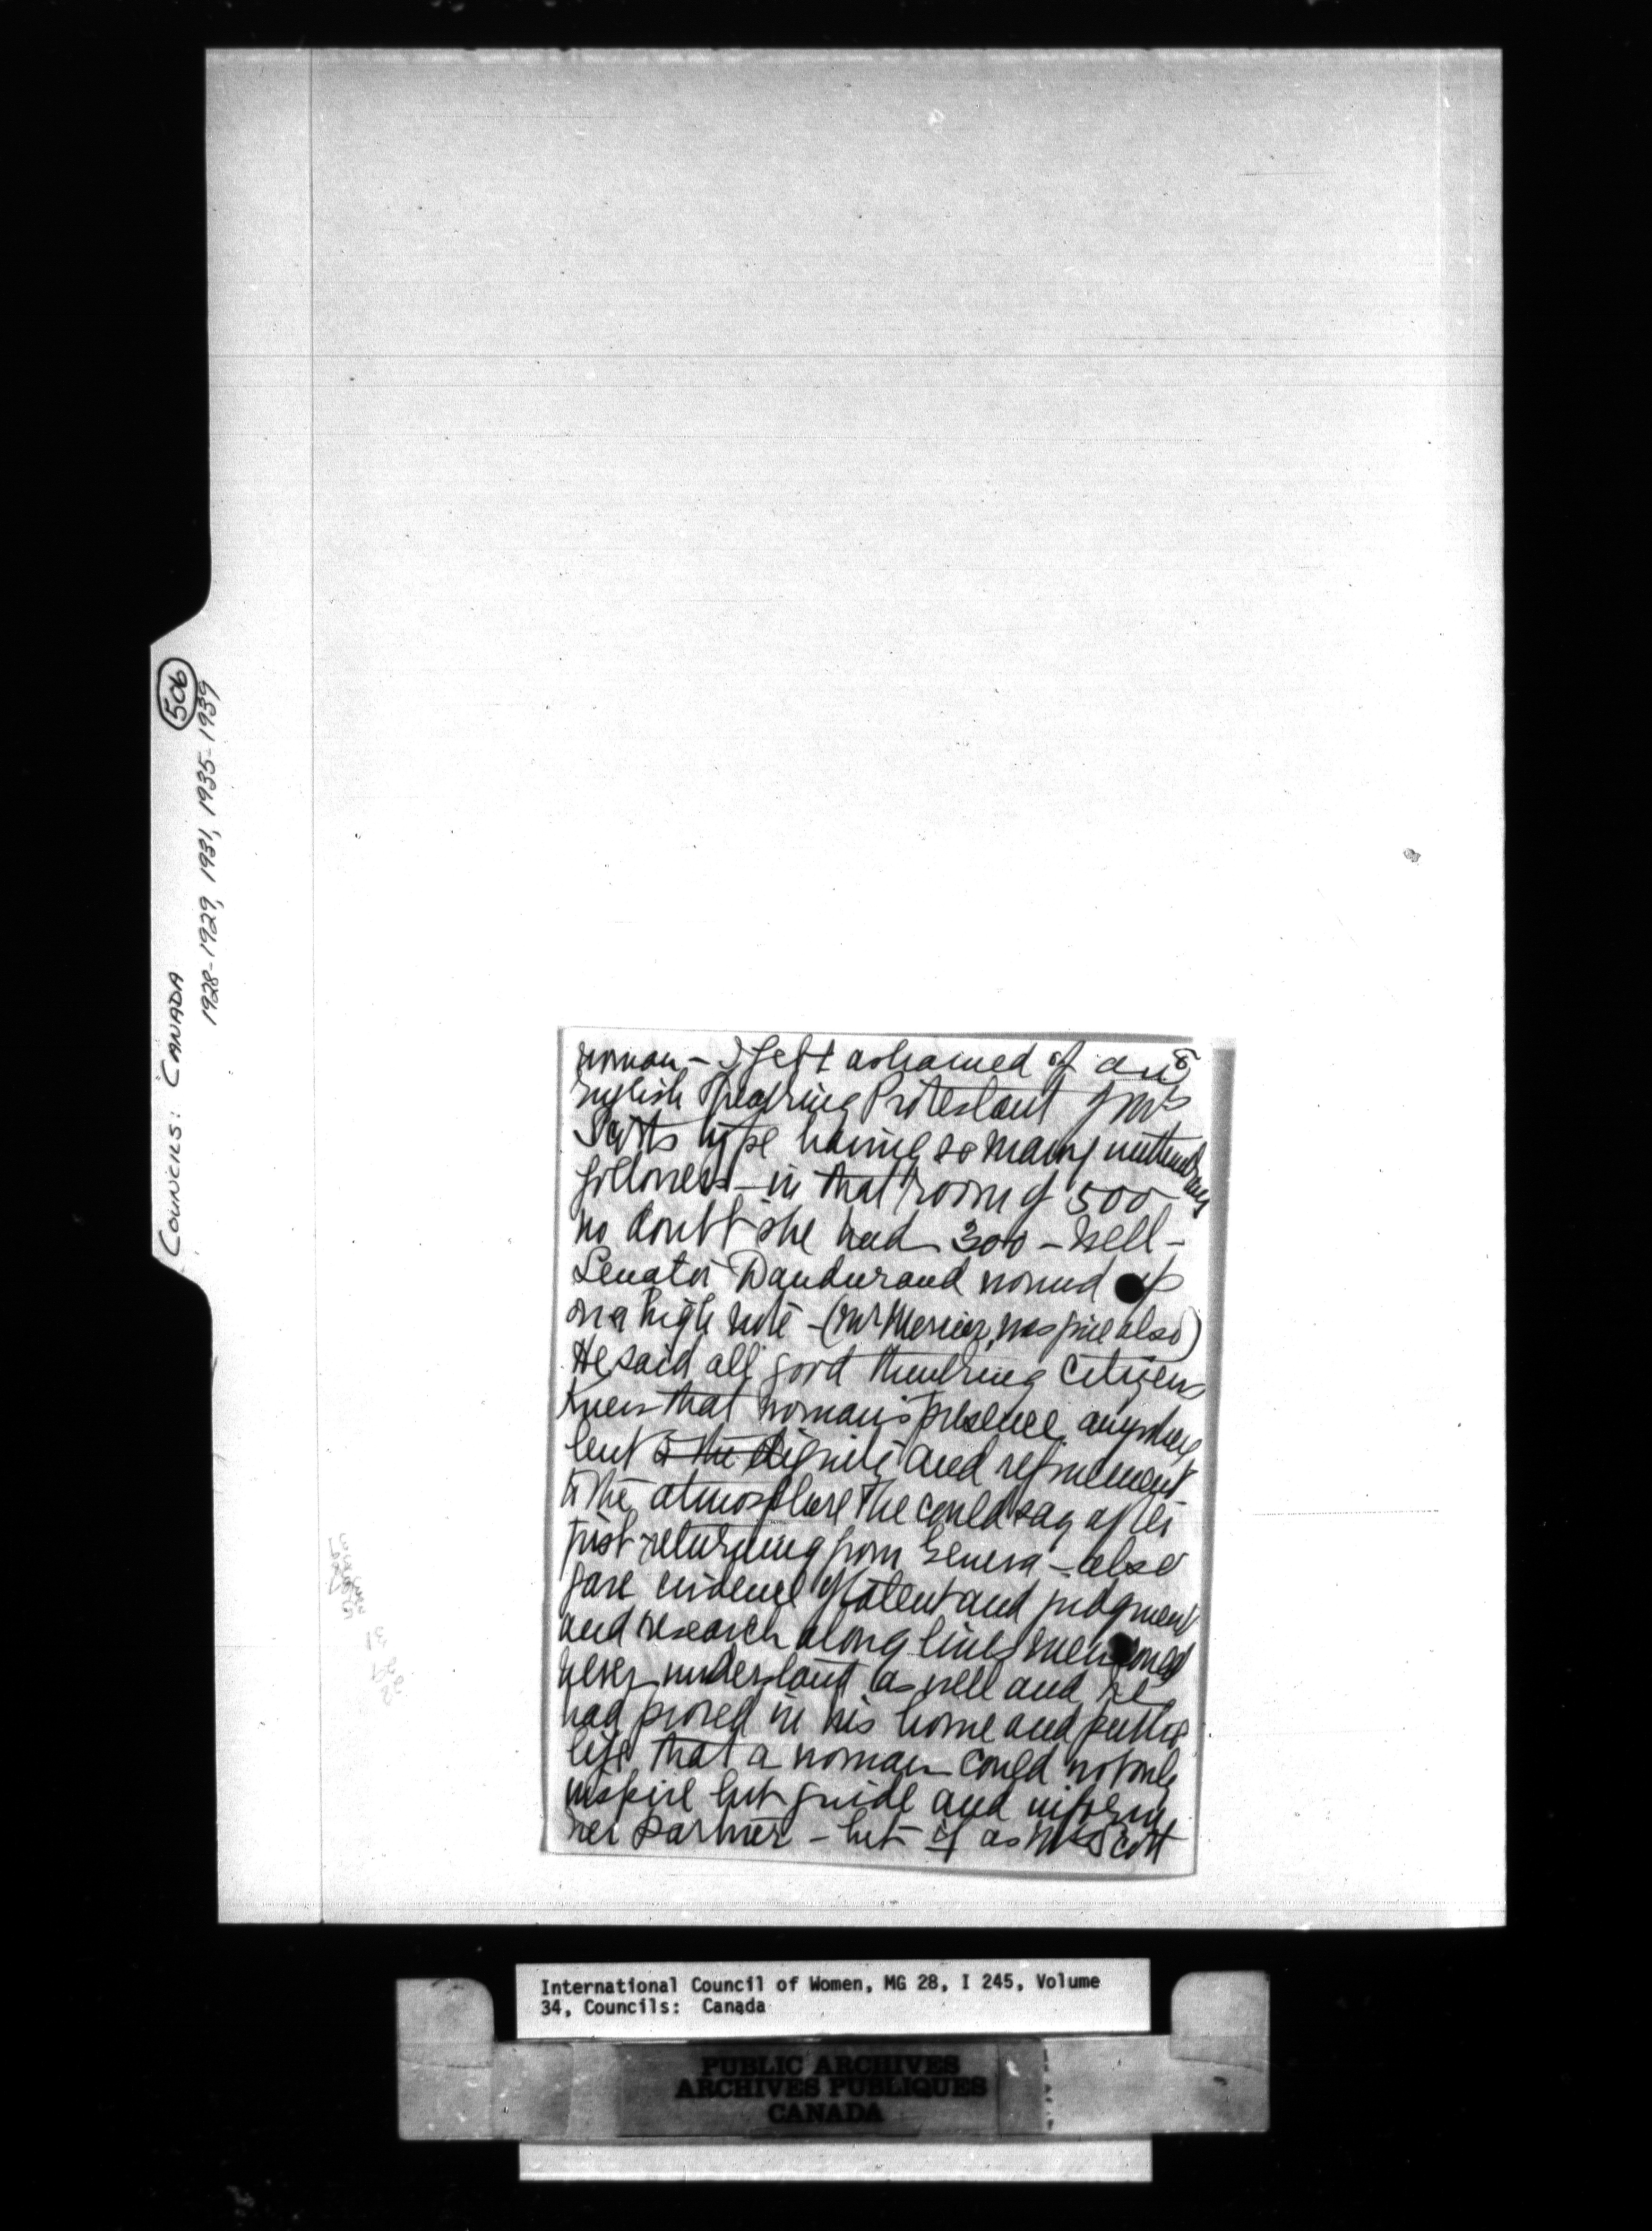 506
COUNCILS: CANADA
1928-1929, 1931, 1935-1939
8
woman - I felt ashamed of an
English Speaking Protestant of Mrs
Scotts type having so many
followers - in that room of 500
no doubt she had 300 - Well -
Senator Dandurand wound up
on a high note - (Mr Mercier was fine also)
He said all good thinking citizens
knew that woman's presence anywhere
lent to the dignity and refinement
to the atmosphere & he could say after
just returning from Geneva - also
gave evidence of talent and judgment
and research along lines men
never understand as well and he
had proved in his home and public
life that a woman could not only
inspire but guide and inform
her partner - but if as Mrs Scott
International Council of Women, MG 28, I 245, Volume
34, Councils: Canada
PUBLIC ARCHIVES
ARCHIVES PUBLIQUES
CANADA